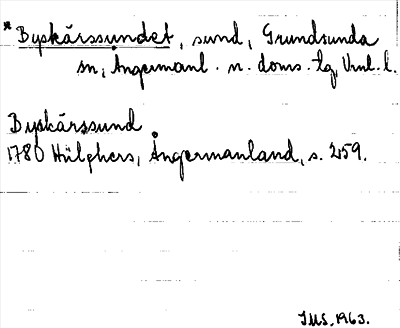 *Byskärssundet, sund, Grundsunda
sn, Ångermanl. n. doms. tg, Vnl. l.
Byskärssund
1780 Hülphers, Ångermanland, s. 259.
IMS. 1963.